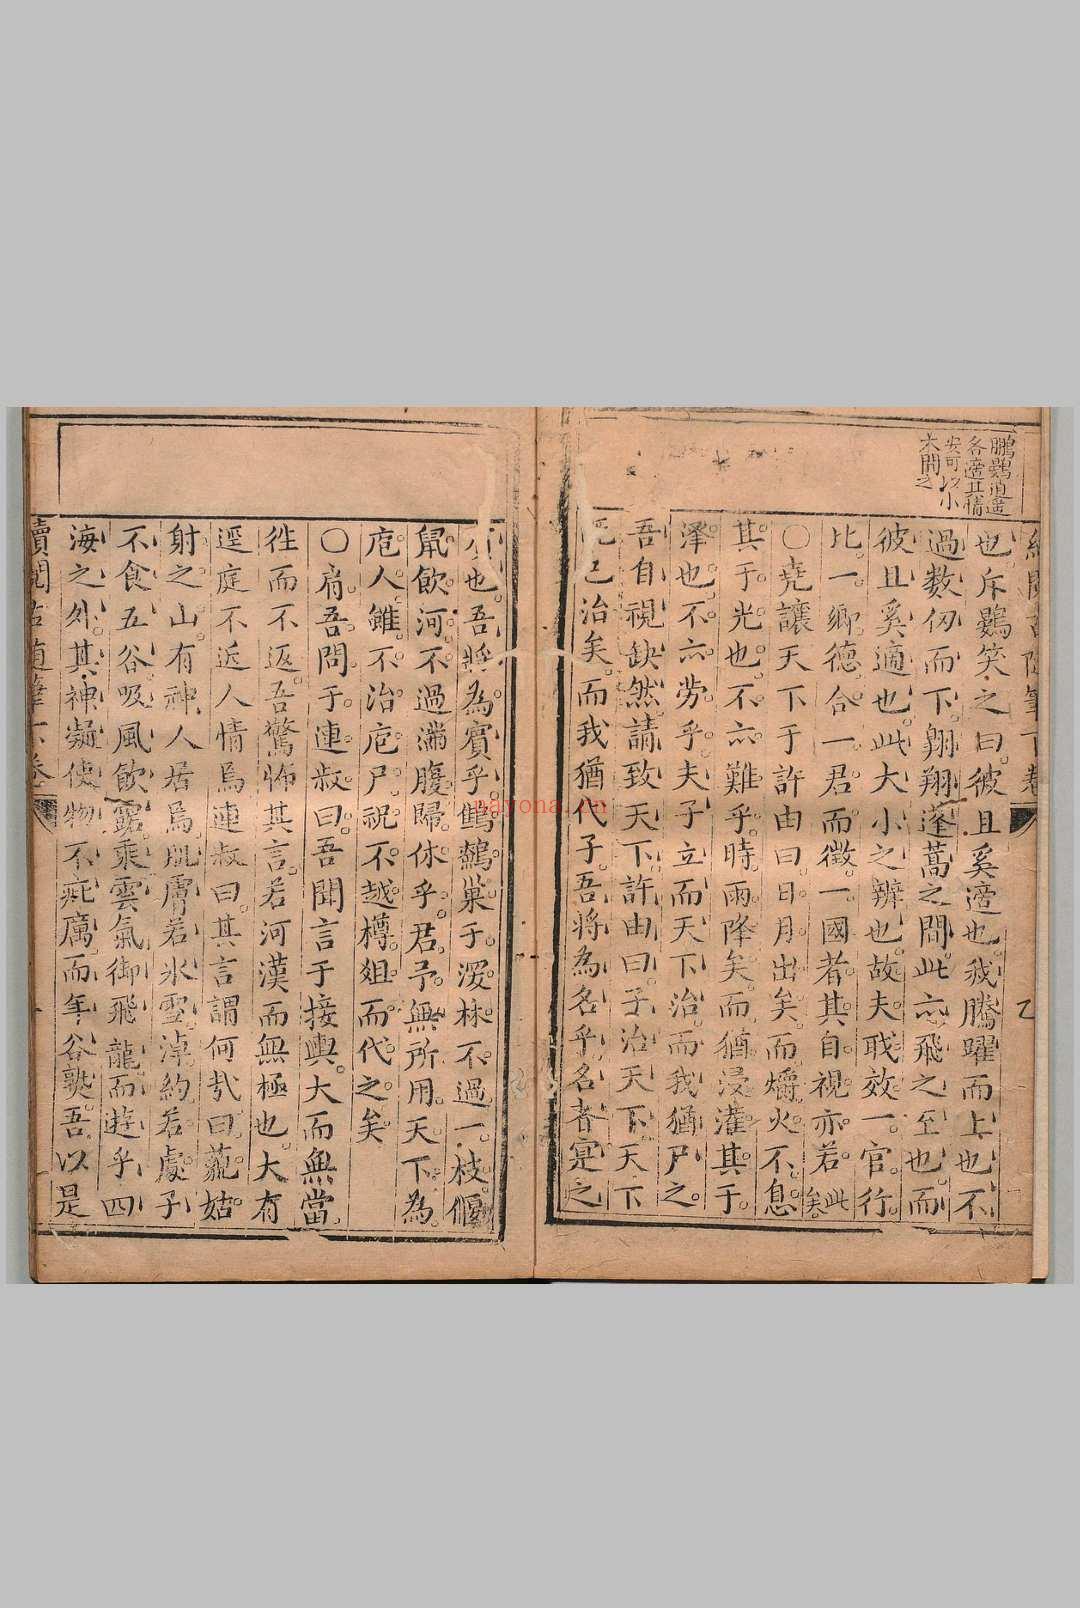 鵬鷃逍遥
各適其情
安可以小
大間之
也斥鷃笑之曰彼且奚適也我騰躍而上也不
過数仞而下翱翔蓬蒿之間此亦飛之至也而
彼且奚適也此大小之辨也故夫聀效一官行
比一鄉德合一君而徵一國者其自視亦若此矣
〇堯讓天下于許由曰日月出矣而爝火不息
其于光也不亦難乎時雨降矣而猶浸灌其于
澤也不亦劳乎夫子立而天下治而我猶尸之
吾自視缺然請致天下許由曰子治天下天下
既已治矣而我猶代子吾将為名乎名者寔之
也吾將為賓乎鷦鷯巢于深林不過一枝偃
鼠飲河不過滿腹歸休乎君予無所用天下為
庖人雖不治庖尸祝不越樽俎而代之矣
〇肩吾問于連叔曰吾聞言于接輿大而無當
徃而不返吾驚怖其言若河漢而無極也大有
逕庭不近人情焉連叔曰其言謂何哉曰藐姑
射之山有神人居焉肌膚若氷雪淖約若處子
不食五谷吸風飲露乘雲氣御飛龍而遊乎四
海之外其神凝使物不疵厲而年谷熟吾以是
nayona.cn